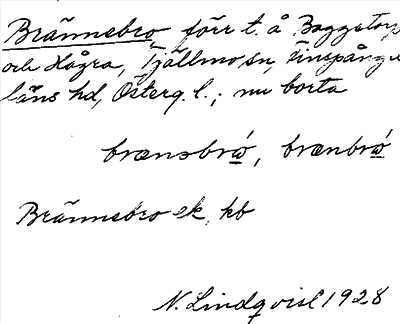 Brännebro förr t. å Baggetorp
och Hågra, Tjällmo sn, Finspånga
läns hd, Österg. l.; nu borta
brænsbrω, brænbrω
Brännebro ek, kb
N. Lindqvist 1928